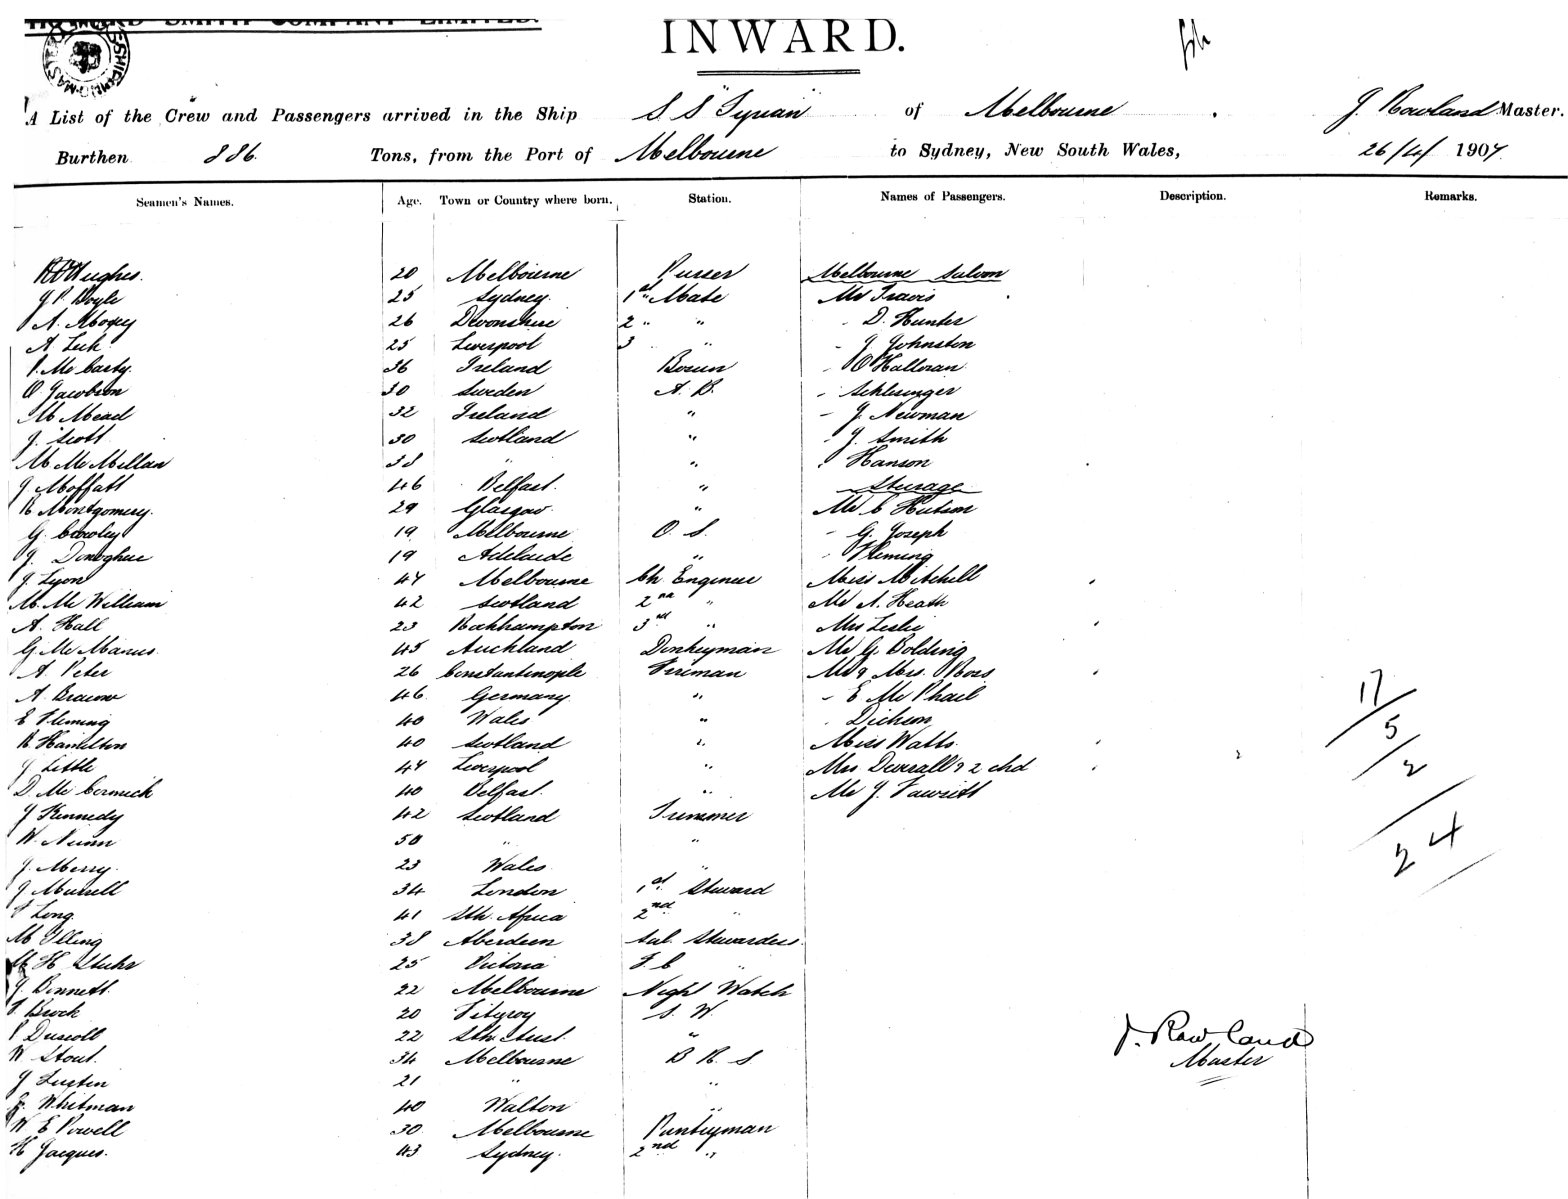 HOWARD SMITH COMPANY LIMITED.
INWARD.
A List of the Crew and Passengers arrived in the Ship S S "Syrian" of Melbourne J Rowland Master.
Burthen 886 Tons, from the Port of Melbourne to Sydney, New South Wales, 26/4/1907
Seamen's Names. Age. Town or Country where born. Station. Names of Passengers. Description. Remarks.
Hughes. 20 Melbourne Purser Melbourne Saloon
J P Boyle 25 Sydney 1st Mate Mr Travis
A. Moxey 26 Devonshire 2 " " " D. Hunter
A Lick 25 Liverpool 3 " " J Johnston
P. McCarty 36 Ireland Bosun " O'Halloran
O Jacobson 30 Sweden A. B. " Schlesinger
M Mead 32 Ireland " " J. Newman
J. Scott 30 Scotland " " J. Smith
M McMillan 38 " " " Hanson
J Moffatt 46 Belfast. " Steerage
R Montgomery. 29 Glasgow " Mr C Hutson
G. Crowley 19 Melbourne O. S. " G. Joseph
J. Donoghue 19 Adelaide " " Fleming
J Lyon 47 Melbourne Ch Engineer Miss Mitchell
M. McWilliam 42 Scotland 2nd " Mr A. Heath
A. Hall 23 Rockhampton 3rd " Mrs Leslie
G McManus 45 Auckland Donkeyman Mr G Bolding
A Peter 26 Constantinople Fireman Mr & Mrs. Ross
A Braun 46 Germany " " E McPhail
E Fleming 40 Wales " " Dickson
R Hamilton 40 Scotland " Miss Watts.
J Little 47 Liverpool " Mrs Deverall & 2 chd
D McCormick 40 Belfast. " Mr J. Fawsitt
J Kennedy 42 Scotland Trimmer
W. Nunn 50 " "
J. Merry. 23 Wales "
J Murrell 34 London 1st Steward
Long 41 Sth. Africa 2nd "
M Illing 38 Aberdeen Sal. Stewardess
M H Stuhr 25 Victoria F. C "
J. Bennett 22 Melbourne Night Watch
F. Brock 20 Fitzroy S. W
P Driscoll 22 Sth Aust. "
W Stout. 34 Melbourne B R S
J Luxton 21 " "
Whitman 40 Walton "
W E Powell 30 Melbourne Pantryman
H Jacques. 43 Sydney. 2nd "
17
5
2
24
J. Rowland
Master